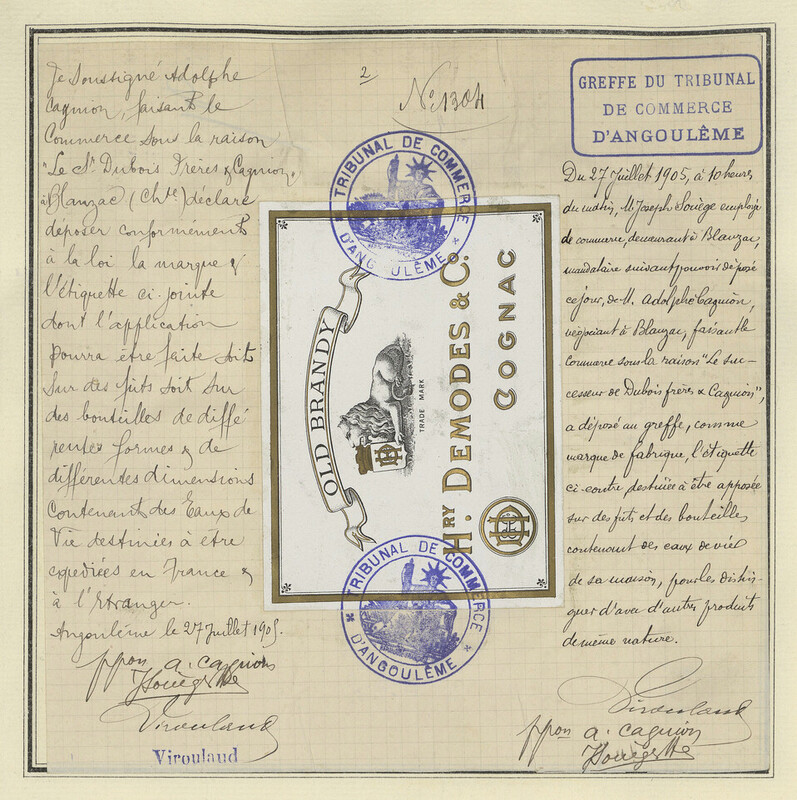 Je Soussigné Adolphe
Cagnion, faisant le
Commerce sous la raison
"Le Sr Dubois Frères & Cagnion,
à Blanzac (Chte) déclare
déposer conformément
à la loi la marque &
l'étiquette ci-jointe
dont l'application
pourra être faite soit
sur des futs soit sur
des bouteilles de diffé
rentes formes & de
différentes dimensions
contenant des Eaux de
Vie destinées à être
expédiées en France &
à l'Etranger.
Angoulême le 27 Juillet 1905.
ppon a. cagnion
Virouland
Virouland
2
No 1304
TRIBUNAL DE COMMERCE
D'ANGOULÊME
OLD BRANDY
TRADE MARK
HRY DEMODES & Co.
COGNAC
TRIBUNAL DE COMMERCE
D'ANGOULÊME
GREFFE DU TRIBUNAL
DE COMMERCE
D'ANGOULÊME
Du 27 Juillet 1905, à 10 heures
du matin, M Joseph Souège employé
de commerce, demeurant à Blanzac,
mandataire suivant pouvoir déposé
ce jour, de M. Adolphe Cagnion,
négociant à Blanzac, faisant le
commerce sous la raison "Le suc-
cesseur de Dubois frères & Cagnion",
a déposé au greffe, comme
marque de fabrique, l'étiquette
ci-contre, destinée à être apposée
sur des futs et des bouteilles
contenant des eaux de vie
de sa maison, pour les distin-
guer d'avec d'autres produits
de même nature.
Virouland
ppon a. cagnion